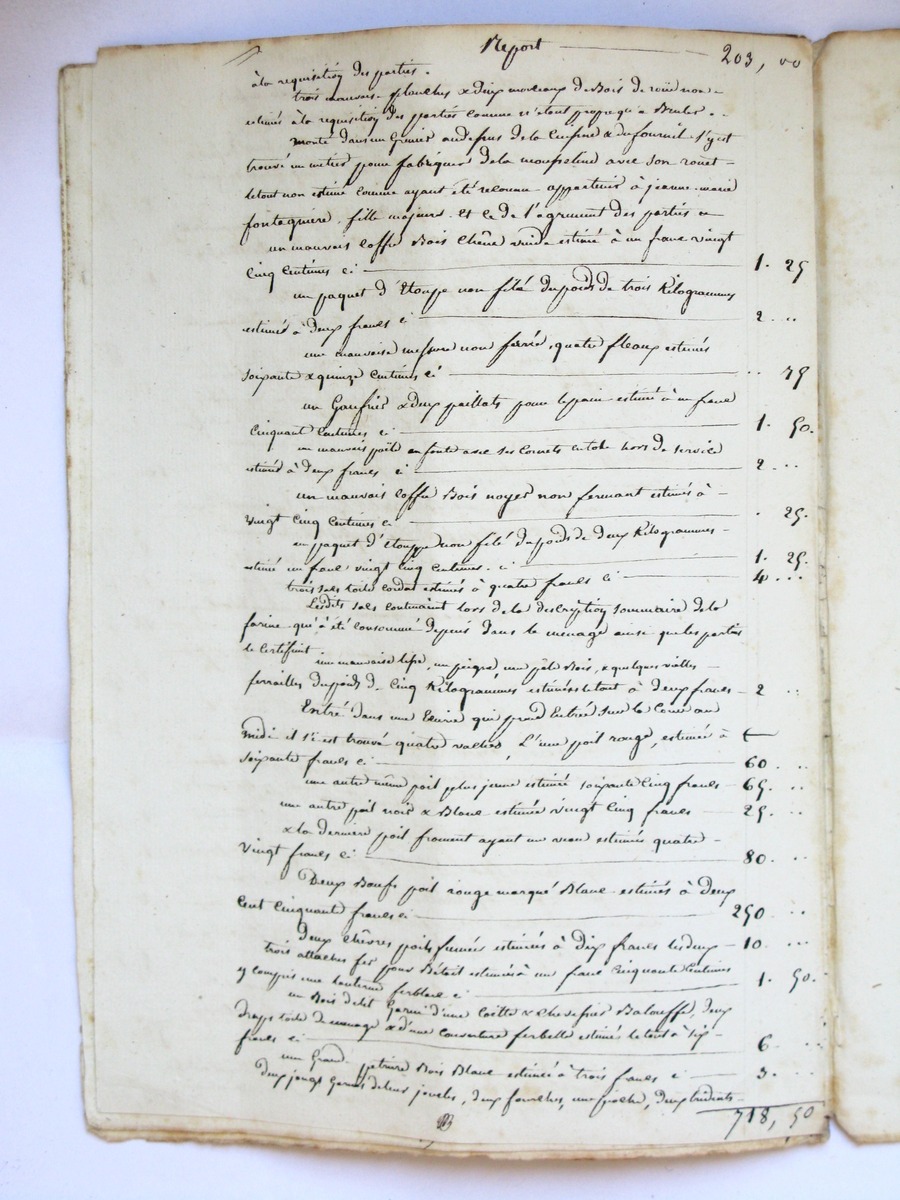 Report 203, 00
à la requisition des parties.
trois mauvaises planches & deux morceaux de Bois de roüe non
estimés à la requisition des parties comme n'étant propre qu'à Bruler.
Monté dans un Grenier au dessus de la Cuisine & du fournil s'y est
trouvé un métier pour fabriquer de la mousseline avec son rouet
le tout non estimé comme ayant été reconnu appartenir à jeanne marie
fille majeure, et ce de l'agrément des parties
un mauvais coffre Bois chêne vuide estimé à un franc vingt
cinq centimes ci 1. 25
un paquet d'Etoupe non filé du poids de trois Kilogrammes
estimé à deux francs ci 2 ..
une mauvaise messure non ferrée, quatre fleaux estimés
soixante & quinze centimes ci .. 75
un Gaufrier & deux paillats pour le pain estimé à un franc
cinquante centimes ci 1. 50.
un mauvais poële en fonte avec ses cornets en tole hors de service
estimé à deux francs ci 2 ...
un mauvais coffre Bois noyer non fermant estimés à
vingt cinq centimes ci . 25.
un paquet d'étouppe non filé du poids de deux Kilogrammes
estimé un franc vingt cinq centimes. ci 1. 25.
trois sacs toile cordat estimés à quatre francs ci 4 ...
Lesdits sacs contenaient lors de la description sommaire de la
farine qui à été consommé depuis dans le menage ainsi que les parties
le certifient
une mauvaise un peigne, une pèle Bois, & quelques vielles
ferrailles du poids de cinq Kilogrammes estimées le tout à deux francs 2 ..
Entré dans une Ecurie qui prend Entrée sur la Cour au
midi il s'i est trouvé quatre vaches, L'une poil rouge, estimée à
soixante francs ci 60 ..
une autre même poil plus jeune estimée soixante cinq francs 65. ..
une autre poil noir & Blanc estimée vingt cinq francs 25. ..
& la derniere poil froment ayant un veau estimés quatre
vingt francs ci 80. ..
Deux Boeufs poil rouge marqué Blanc estimés à deux
cent cinquante francs ci 250 ...
Deux chèvres poils fumées estimées à dix francs les deux 10. ...
trois attaches fer pour Bétail estimés à un franc cinquante centimes
y compris une lanterne ferblanc ci 1. 50.
un Bois de lit Garni d'une Coëtte & chevet Balouffe, deux
draps toile de menage & d'une couverture estimé le tout à six
francs ci 6 ..
une Grand petriere Bois Blanc estimée à trois francs ci 3. ...
Deux jougs Garnis de leurs juscles, deux fourches, une pioche, deux tridents
718, 50